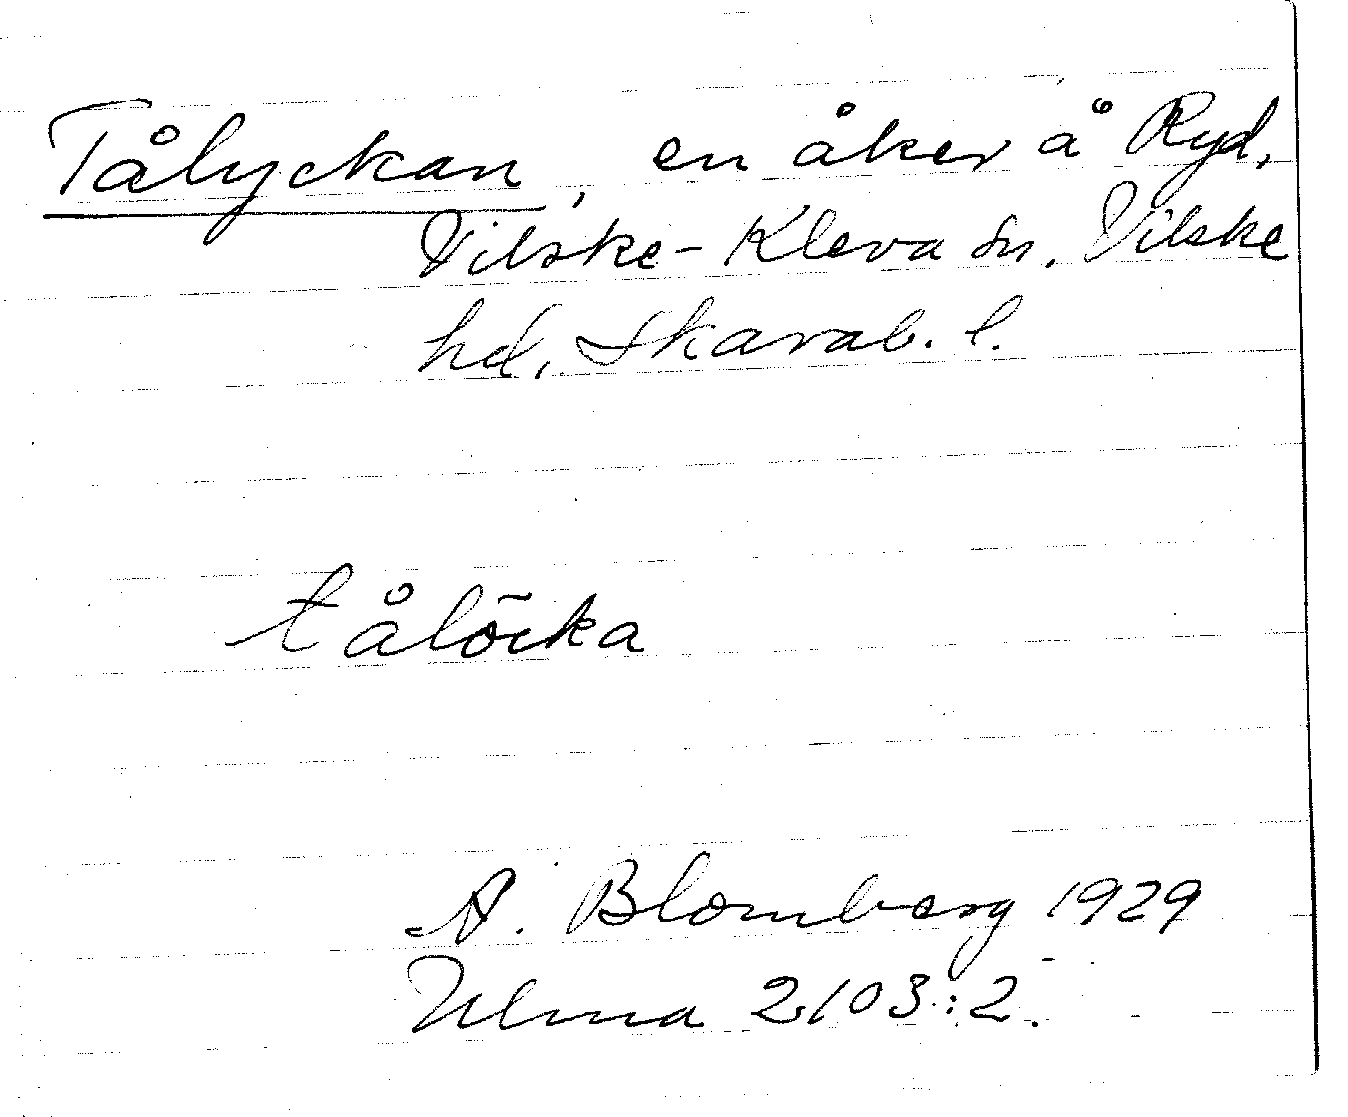 Tålyckan, en åker å Ryd,
Vilske-Kleva sn. Vilske
hd, Skarab. l.
tålõcka
A. Blomberg 1929
Ulma 2103:2.